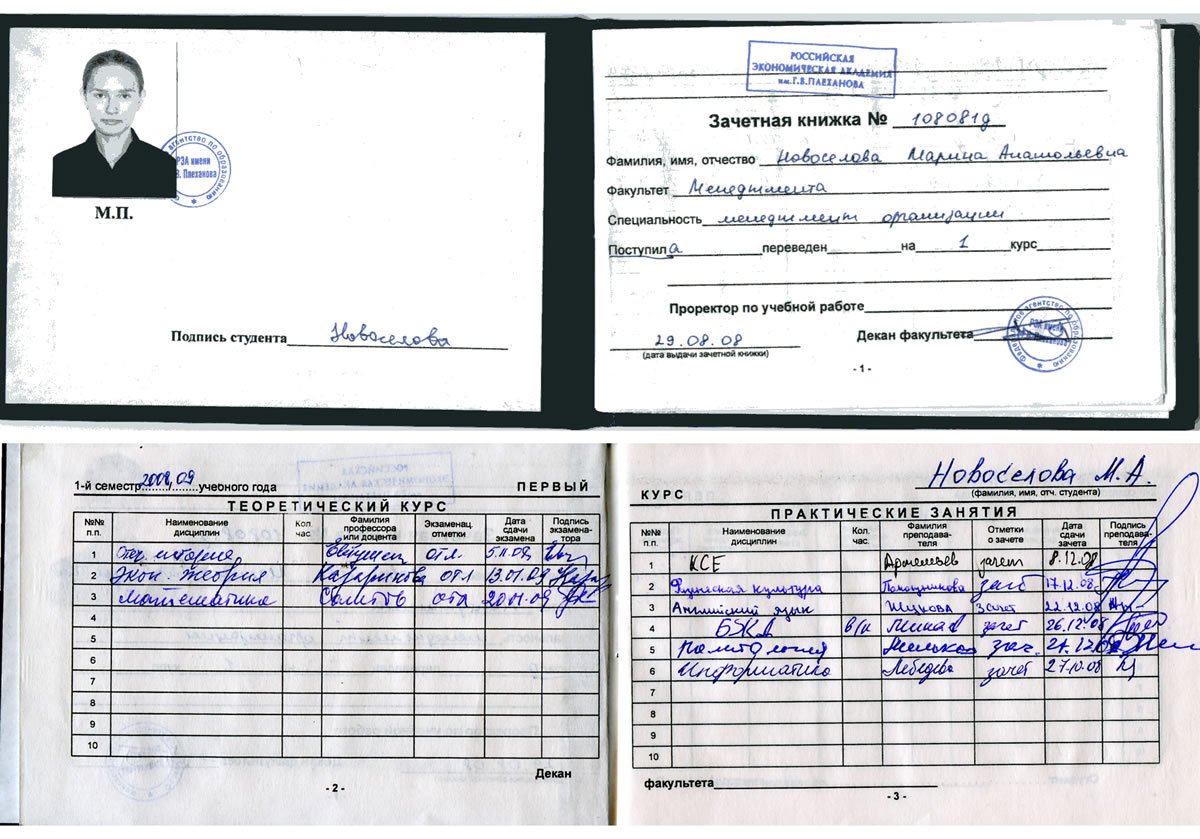 М.П.
агентство по образованию
РЭА имени
В. Плеханова
Подпись студента Новоселова
РОССИЙСКАЯ
ЭКОНОМИЧЕСКАЯ АКАДЕМИЯ
им. Г.В.ПЛЕХАНОВА
Зачетная книжка № 108081д
Фамилия, имя, отчество Новоселова Марина Анатольевна
Факультет Менеджмента
Специальность менеджмент организации
Поступила переведен на 1 курс
Проректор по учебной работе
29.08.08 Декан факультета
(дата выдачи зачетной книжки)
- 1 -
1-й семестр 2008/09 учебного года ПЕРВЫЙ
ТЕОРЕТИЧЕСКИЙ КУРС
№№ п.п. Наименование дисциплин Кол. час. Фамилия профессора или доцента Экзаменац. отметки Дата сдачи экзамена Подпись экзамена-тора
1 история отл.
2 Экон. теория отл 13.01.09
3 Математика отл 20.01.09
4
5
6
7
8
9
10
Декан
- 2 -
Новоселова М.А.
КУРС (фамилия, имя, отч. студента)
ПРАКТИЧЕСКИЕ ЗАНЯТИЯ
№№ п.п. Наименование дисциплин Кол. час. Фамилия преподава-теля Отметки о зачете Дата сдачи зачета Подпись преподава-теля
1 КСЕ зачет 8.12.08
2 Физическая культура зачет 17.12.08
3 Английский язык Шукова зачет 22.12.08
4 БЖД зачет 26.12.08
5 Политология зач.
6 Информатика Лебедева зачет 27.10.08
7
8
9
10
факультета
- 3 -